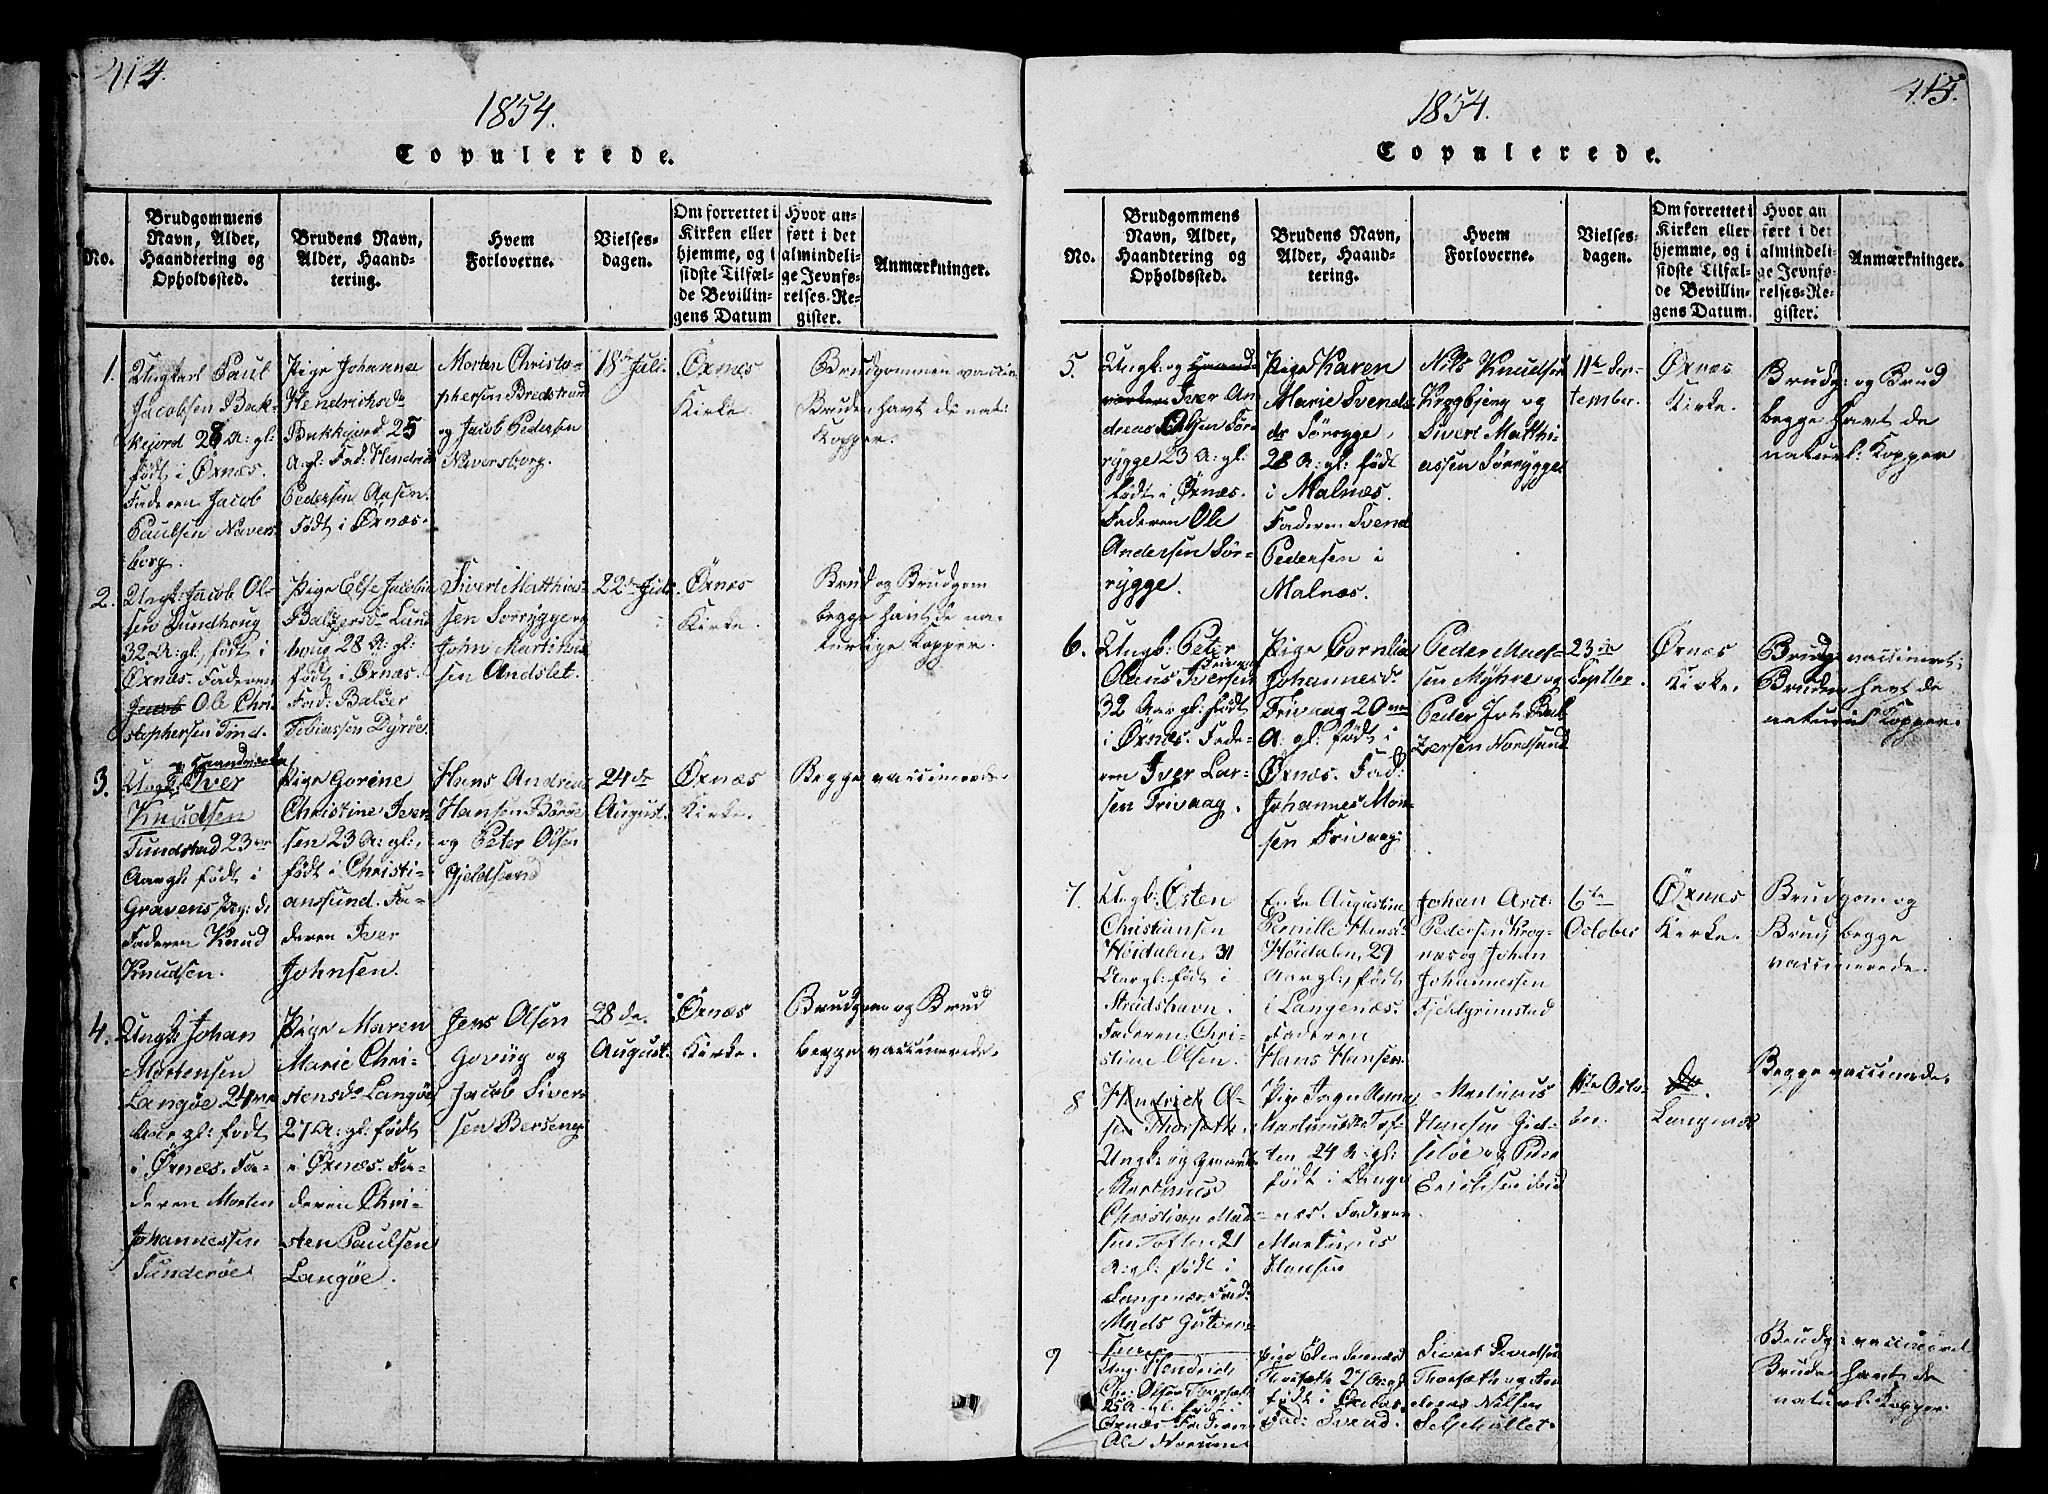 414.
1854.
Copulerede.
No.
Brudgommens
Navn, Alder,
Haandtering og
Opholdssted.
Brudens Navn,
Alder, Haand-
tering.
Hvem
Forloverne.
Vielses-
dagen.
Om forrettet i
Kirken eller
hjemme, og i
sidste Tilfæl-
de Bevillin-
gens Datum
Hvor an-
ført i det
almindeli-
ge Jevnfø-
relses-Re-
gister.
Anmærkninger.
1.
Ungkarl Paul
Jacobsen Bak-
kejord 28 A: gl:
født i Öxnæs.
Faderen Jacob
Paulsen Navers-
borg.
Pige Johanna
Hendrichsdr
Bakkejord 25
A gl: Fad: Hendrik
Pedersen Aasen.
født i Öxnæs.
Morten Christo-
phersen Bredstrand
og Jacob Pedersen
Naversborg.
18de Juli.
Öxnæs
Kirke.
Brudgommen vaccin.
Bruden havt de nat:
Kopper.
2.
Ungk: Jacob Ol-
sen Lundhoug
32 A: gl, født i
Öxnæs. Faderen
Jacob Ole Chri-
stophersen Tind.
Pige Else Jacobine
Baltzersdr Lund
houg 28 A: gl:
født i Öxnæs.
Fad: Balser
Tobiassen Dyrøe.
Sivert Matthias-
sen Sörrygge og
John Martinus
sen Andslet.
22de Juli.
Öxnæs
Kirke.
Brud og Brudgom
begge havt de na-
turlige Kopper.
3.
og Haandværker
Ungk: Iver
Knudsen
Tundstad 23
Aar gl: født i
Gravens Prg: d
Faderen Knud
Knudsen.
Pige Gorine
Christine Iver
sen 23 A: gl:,
født i Christi-
anssund. Fa-
deren Iver
Johnsen.
Hans Andreas
Hansen Börøe
og Peter Olsen
Gjeldsund
24de
August.
Öxnæs
Kirke.
Begge vaccinerede
4.
Ungk: Johan
Mortensen
Langøe 24
Aar gl: født
i Öxnæs. Fa-
deren Morten
Johannessen
Tunderøe
Pige Maren
Marie Chri-
stensdr Langøe
27 A: gl: født
i Öxnæs. Fa-
deren Chri-
sten Paulsen
Langøe.
Jens Olsen
Goviig og
Jacob Siver-
sen Berseng
28de
August.
Öxnæs
Kirke.
Brudgom og Brud
begge vaccinerede.
415.
1854.
Copulerede.
No.
Brudgommens
Navn, Alder,
Haandtering og
Opholdssted.
Brudens Navn,
Alder, Haand-
tering.
Hvem
Forloverne.
Vielses-
dagen.
Om forrettet i
Kirken eller
hjemme, og i
sidste Tilfæl-
de Bevillin-
gens Datum.
Hvor an
ført i det
almindeli-
ge Jevnfø-
relses-Re-
gister.
Anmærkninger.
5.
Ungk: og Haand-
værker Iver An
dreas Olsen Sör-
rygge 23 A: gl:
født i Öxnæs.
Faderen Ole
Andersen Sör-
rygge.
Pige Karen
Marie Svends
dr Sörrygge,
28 A: gl: født
i Malnæs.
Faderen Svend
Pedersen i
Malnæs.
Nils Knudsen
Kyggbjerg og
Sivert Matthi-
assen Sörrygge
11te Sep-
tember.
Öxnæs
Kirke.
Brudg: og Brud
begge havt de
naturl: Kopper
6.
Ungk: Peter
Olaus Iversen
Frivaag
32 Aar gl: født
i Öxnæs. Fade-
ren Iver Lar-
sen Frivaag.
Pige Cornelia
Johannesdr
Frivaag 20
A: gl: født i
Öxnæs. Fad:
Johannes Mon-
sen Frivaag.
Peder Mad-
sen Myhre og
Peder Joh Bal
zersen Nordsund
23de
Septbr.
Öxnæs
Kirke.
Brudg: vaccineret:
Bruden havt de
naturl: Kopper.
7.
Ungk: Östen
Christiansen
Höidalen, 31
Aar gl: født i
Stradshavn.
Faderen: Chri-
stine Olsen.
Enke Augustine
Pernille Hans
Höidalen, 29
Aar gl:, født
i Langenæs.
Faderen
Hans Hansen
Johan Arnt
Pedersen Krog-
næs og Johan
Johannessen
Fjeldgrimstad
6te
October
Öxnæs
Kirke.
Brudgom og
Brud, begge
vaccinerede.
8
Hendrick Ol-
sen Thorsæth.
Ungk: og
Martinus
Christian Mad
sen Toften 21
A: gl: født i
Langenæs, Fad:
Mads
sen
Martinusdr Tof-
ten 24 A: gl:
født i Lange
næs. Faderen
Martinus
Hansen
Martinus
Hansen
og Peder
Ericksen ibid
1ste Octo-
ber.
do
Langenæs
Begge vaccinerede.
9
Ung: Hendrick
Chr: Olsen Thorsæth
25 A. gl. født i
Öxnæs Faderen
Ole
Thorsæth 27 A: gl
født i Öxnæs.
Fad: Svend
Sivert Sivertsen
Thorsæth og An
dreas Nilsen
Brudg: vaccineret
Bruden havt de
naturl: Kopper